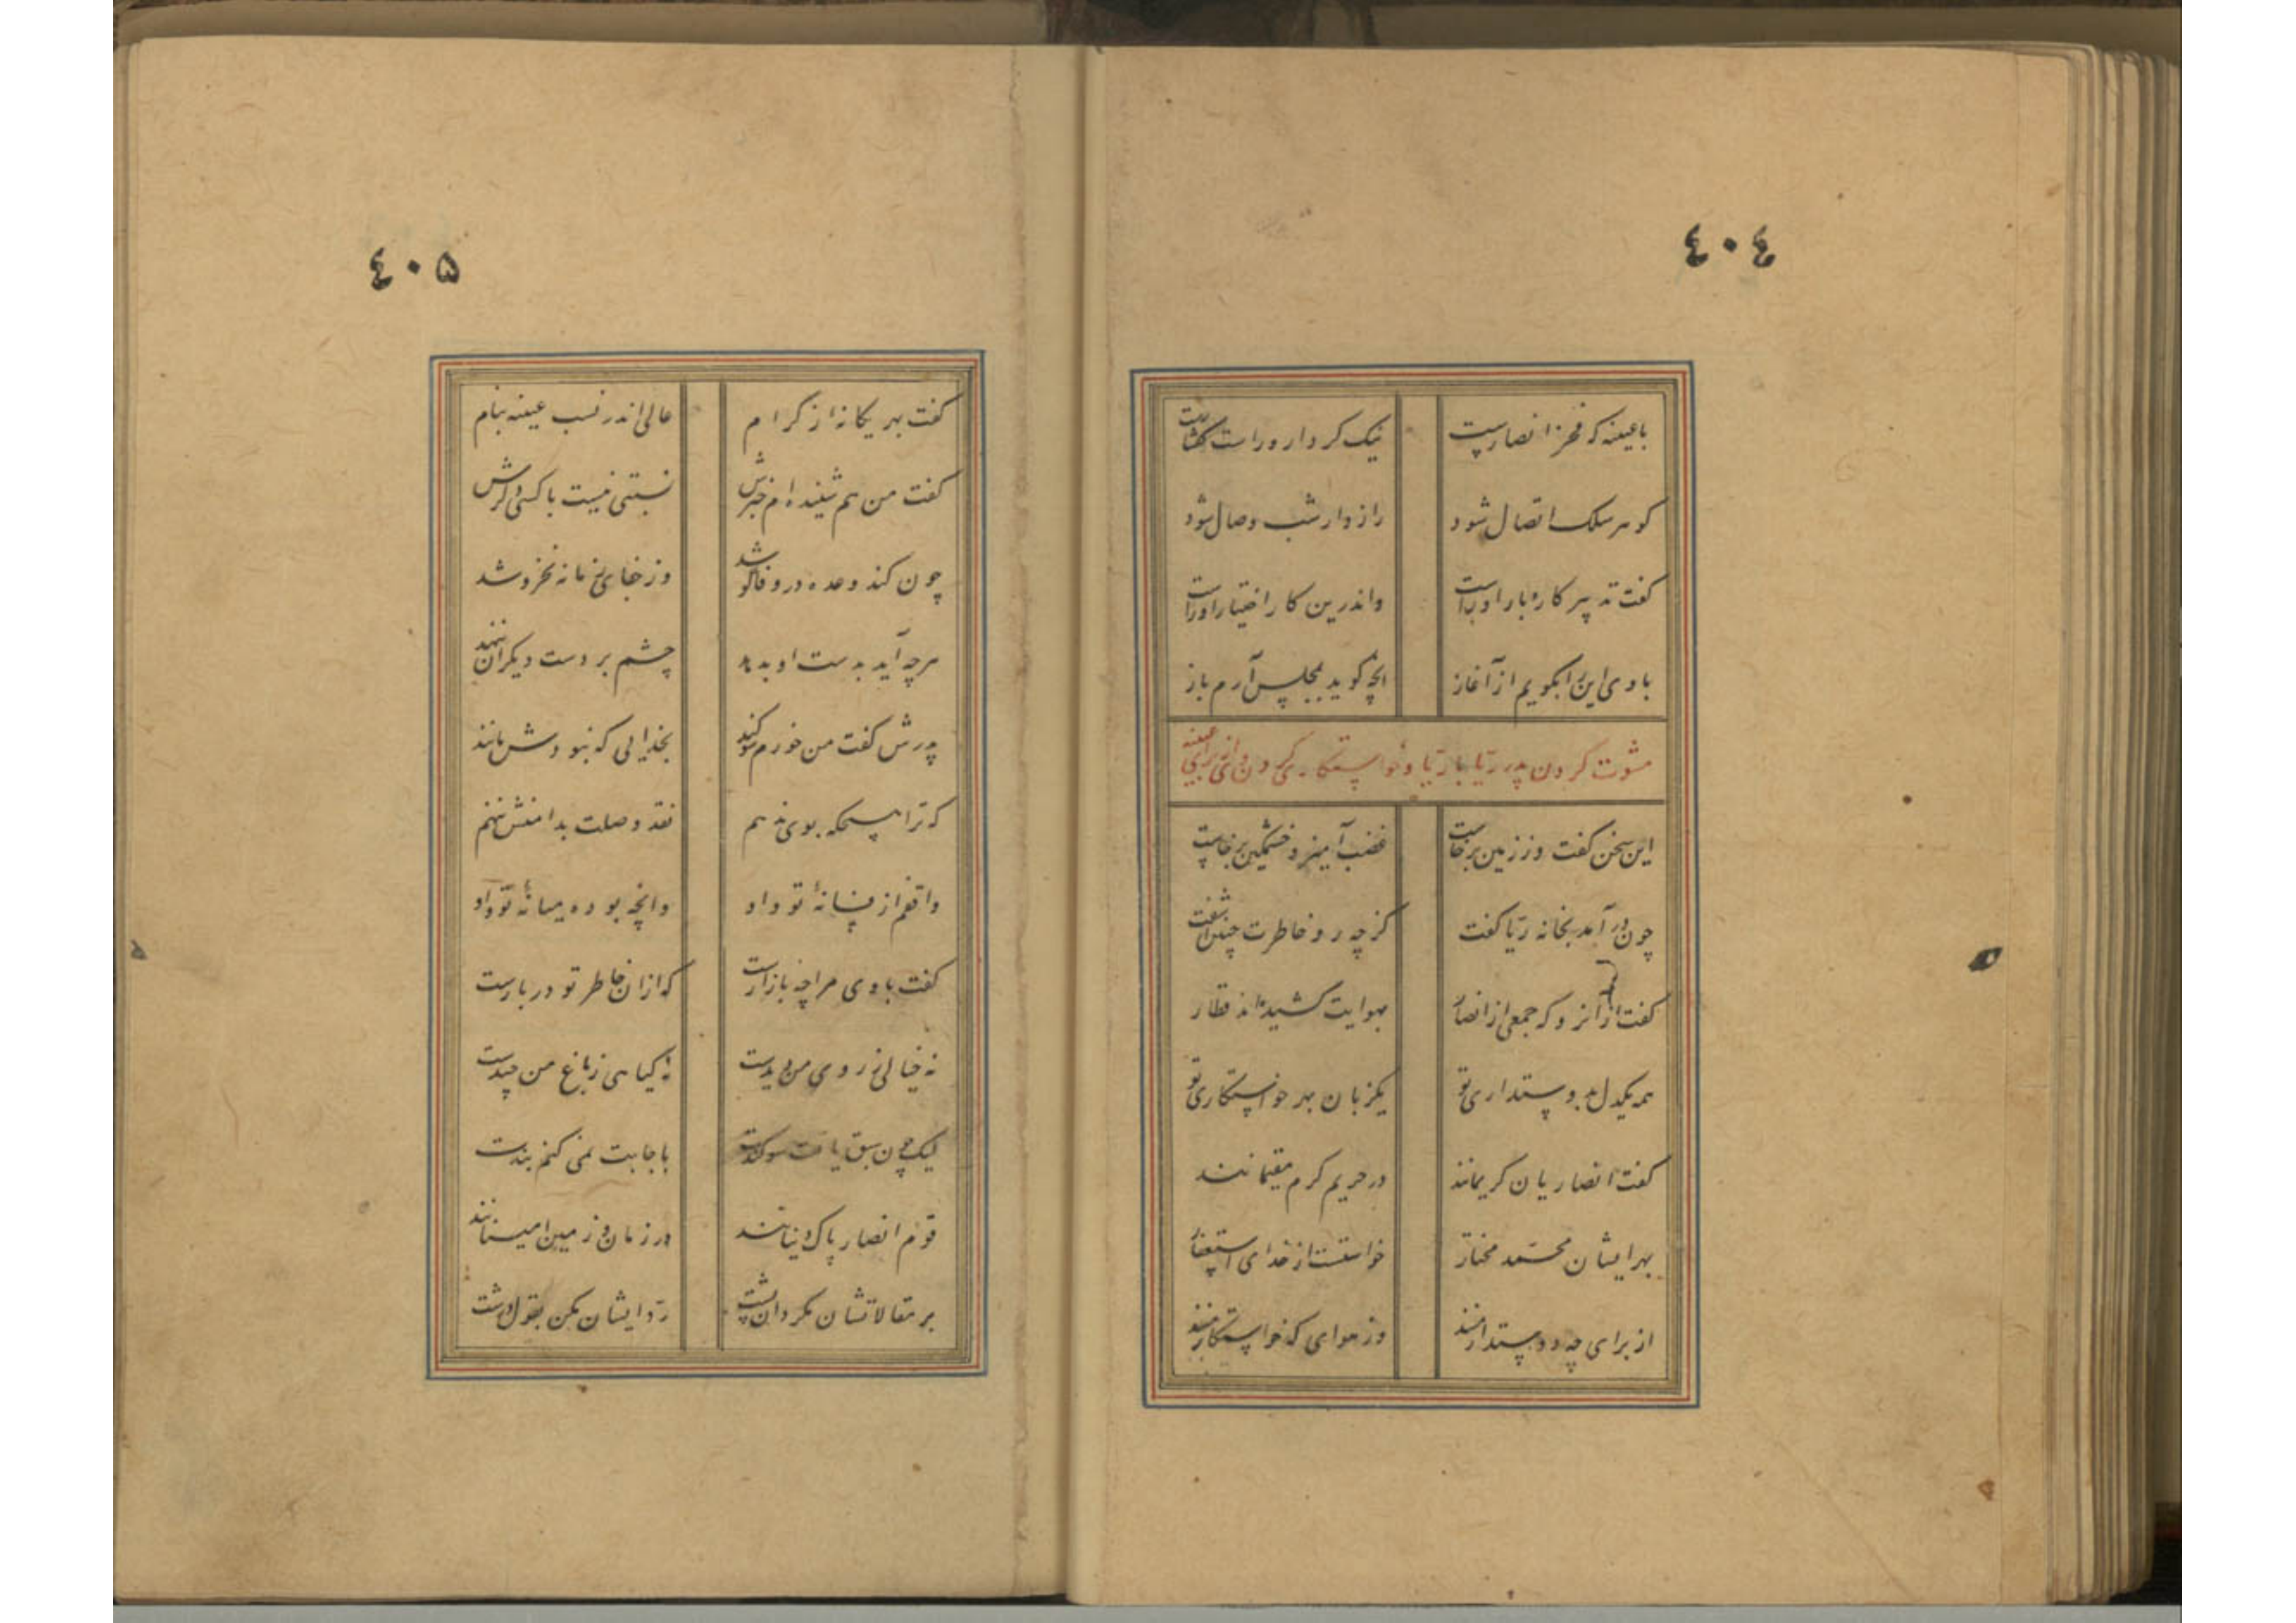 ٤٠٤
با عیینه که فخر انصارست نیک کردار و راست گفتارست
گوهر سلک اتصال شود رازدار شب وصال شود
گفت تدبیر کار و بار او راست واندرین کار اختیار او راست
با وی این را بگویم از آغاز آنچه گوید بمجلس آرم باز
مشورت کردن پدر ریا با ریا و خواستگاری کردن وی از برای عیینه
این سخن گفت وز زمین برخاست غضب آمیز و خشمگین برخاست
چون در آمد بخانه ریا گفت کز چه رو خاطرت چنین آشفت
گفت از آنرو که جمعی از انصار بهوایت کشیده‌اند قطار
همه یکدل بدوستداری تو یکزبان بهر خواستگاری تو
گفت انصاریان کریمانند در حریم کرم مقیمانند
بهر ایشان محمد مختار خواستست از خدای استغفار
از برای چه دوستدارمنند وز هوای که خواستگارمنند
٤٠۵
گفت بهر یگانه‌ از کرام عالی اندر نسب عیینه بنام
گفت من هم شنیده‌ام خبرش نسبتی نیست با کسی دگرش
چون کند وعده در وفا کوشد وز جفای زمانه نخروشد
هرچه آید بدست او بدهد چشم بر دست دیگران ننهد
پدرش گفت من خورم سوگند بخدایی که نبودش مانند
که ترا هیچگه بوی ندهم نقد وصلت بدامنش ننهم
واقفم از فسانهٔ تو و او وانچه بوده میانهٔ تو و او
گفت با وی مرا چه بازارست که ازان خاطر تو در بارست
نه خیالی ز روی من دیدست نه گیاهی ز باغ من چیدست
لیک چون سبق یافت سوگندت باجابت نمی کنم بندت
قوم انصار پاک دینانند در زمان و زمین امینانند
بر مقالاتشان مگردان پشت رد ایشان مکن بقول درشت